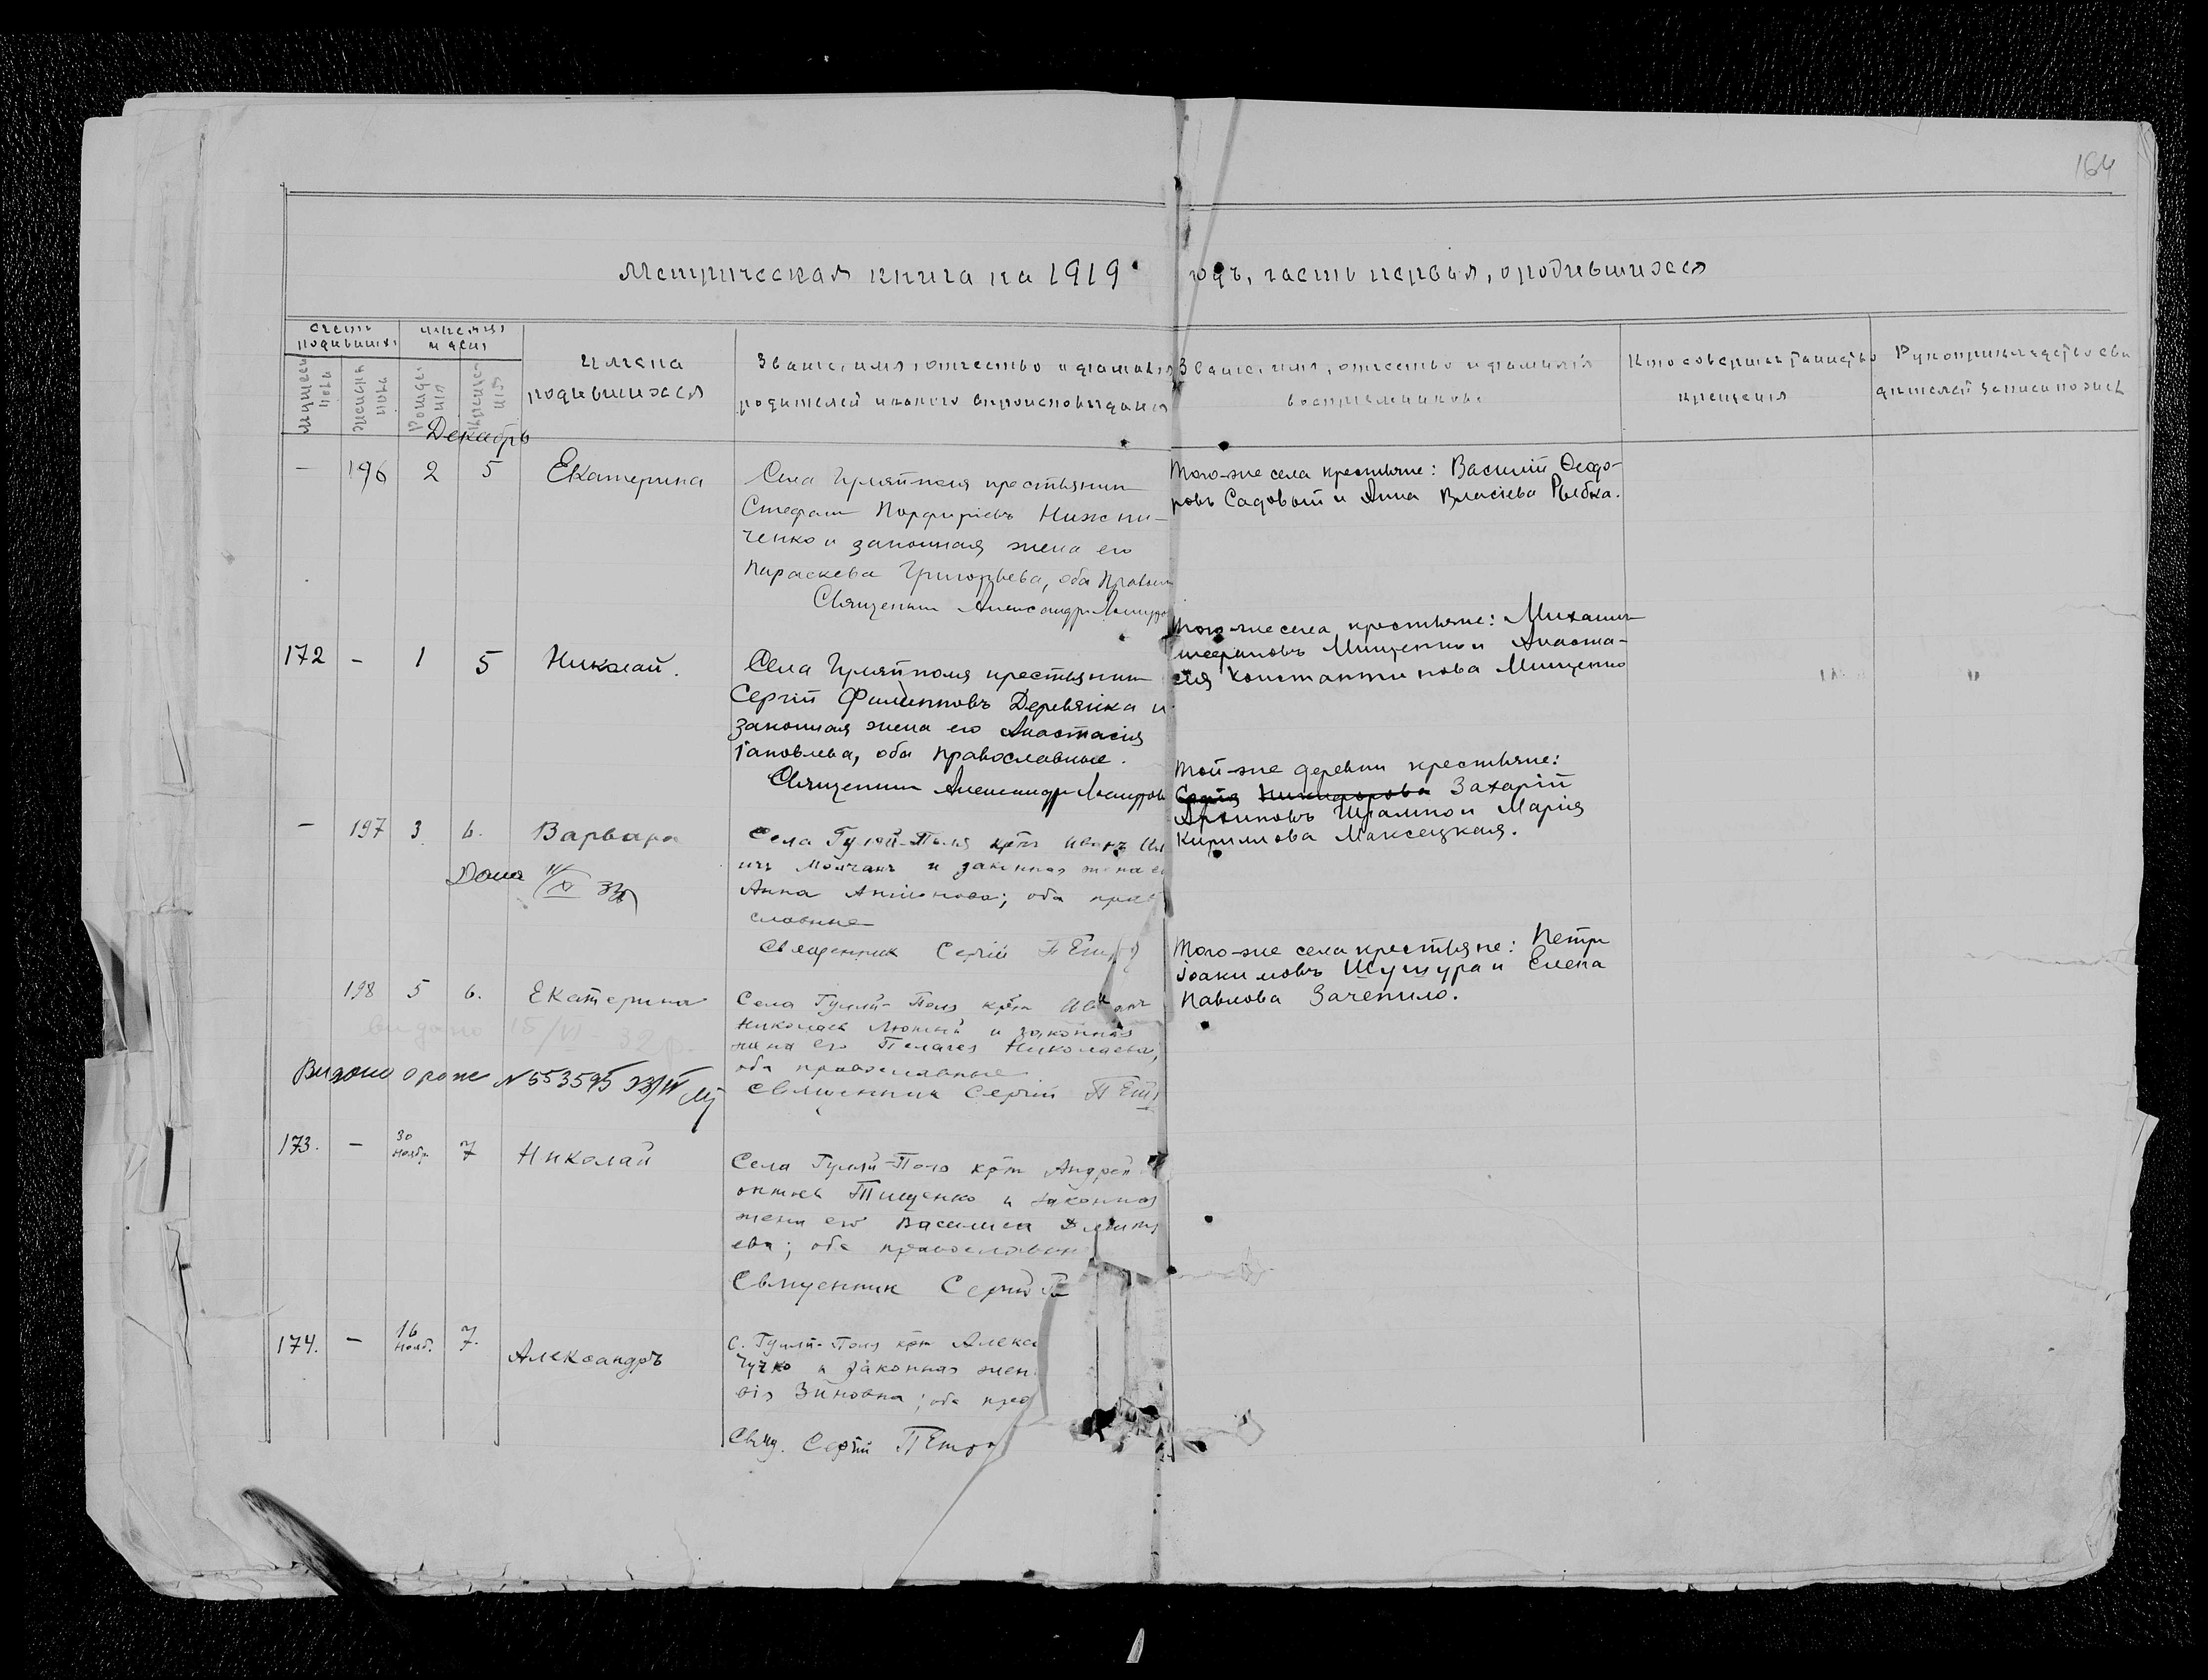 164
Метрическая книга на 1919 годъ, часть первая, о родившихся
счетъ родившихся
мужеска пола
женска пола
время и день
Рожденія
Крещенія
имена
родившихся
Званіе, имя, отчество и фамилія
родителей и какого вѣроисповѣданія
Званіе, имя, отчество и фамилія
воспріемниковъ
Кто совершилъ таинство
крещенія
Рукоприкладство сви
дителей записи по жел
Декабрь
— 196 2 5 Екатерина
Села Гуляйполя крестьянинъ
Стефанъ Порфиріевъ Нижни-
ченко и законная жена его
Параскева Григорьева, оба правосл
Священникъ Александръ
Того-же села крестьяне: Василій Ѳеодо-
ровъ Садовый и Анна Власіева Рыбка.
172 — 1 5 Николай.
Села Гуляйполя крестьянинъ
Сергій Филипповъ Деревянка и
законная жена его Анастасія
Іаковлева, оба православные.
Священникъ Александръ
Того-же села крестьяне: Михаилъ
Стефановъ Мищенко и Анаста-
сія Константинова Мищенко
— 197 3. 6. Варвара
Села Гуляй-Поля крт Иванъ Ил
ичъ Молчанъ и законная жена е
Анна Антонова; оба прав
славные
Священник Сергій Петр
Дана 11/X 33
Той-же деревни крестьяне:
Никифорова Захарій
Архиповъ Шрамко и Марія
Кириллова Максецкая.
198 5 6. Екатерина
Села Гуляй-Поля крт Иванъ
Николаев Лютый и законная
жена его Пелагея Николаева,
оба православные
Священник Сергій Петр
видано 15/VI 32 р.
Видано о рожд N 553595
Того-же села крестьяне: Петръ
Іоакимовъ Шушура и Елена
Павлова Зачепило.
173. — 30 Ноябр. 7 Николай
Села Гуляй-Поля крт Андрей
онтьев Тищенко и законная
жена его Василиса Дмитр
ева; оба православн
Священник Сергій Пе
174. — 16 Нояб. 7. Александръ
С. Гуляй-Поля крт Алекса
Чучко и законная жен
вія Зиновна; оба прав
Свящ. Сергій Петро